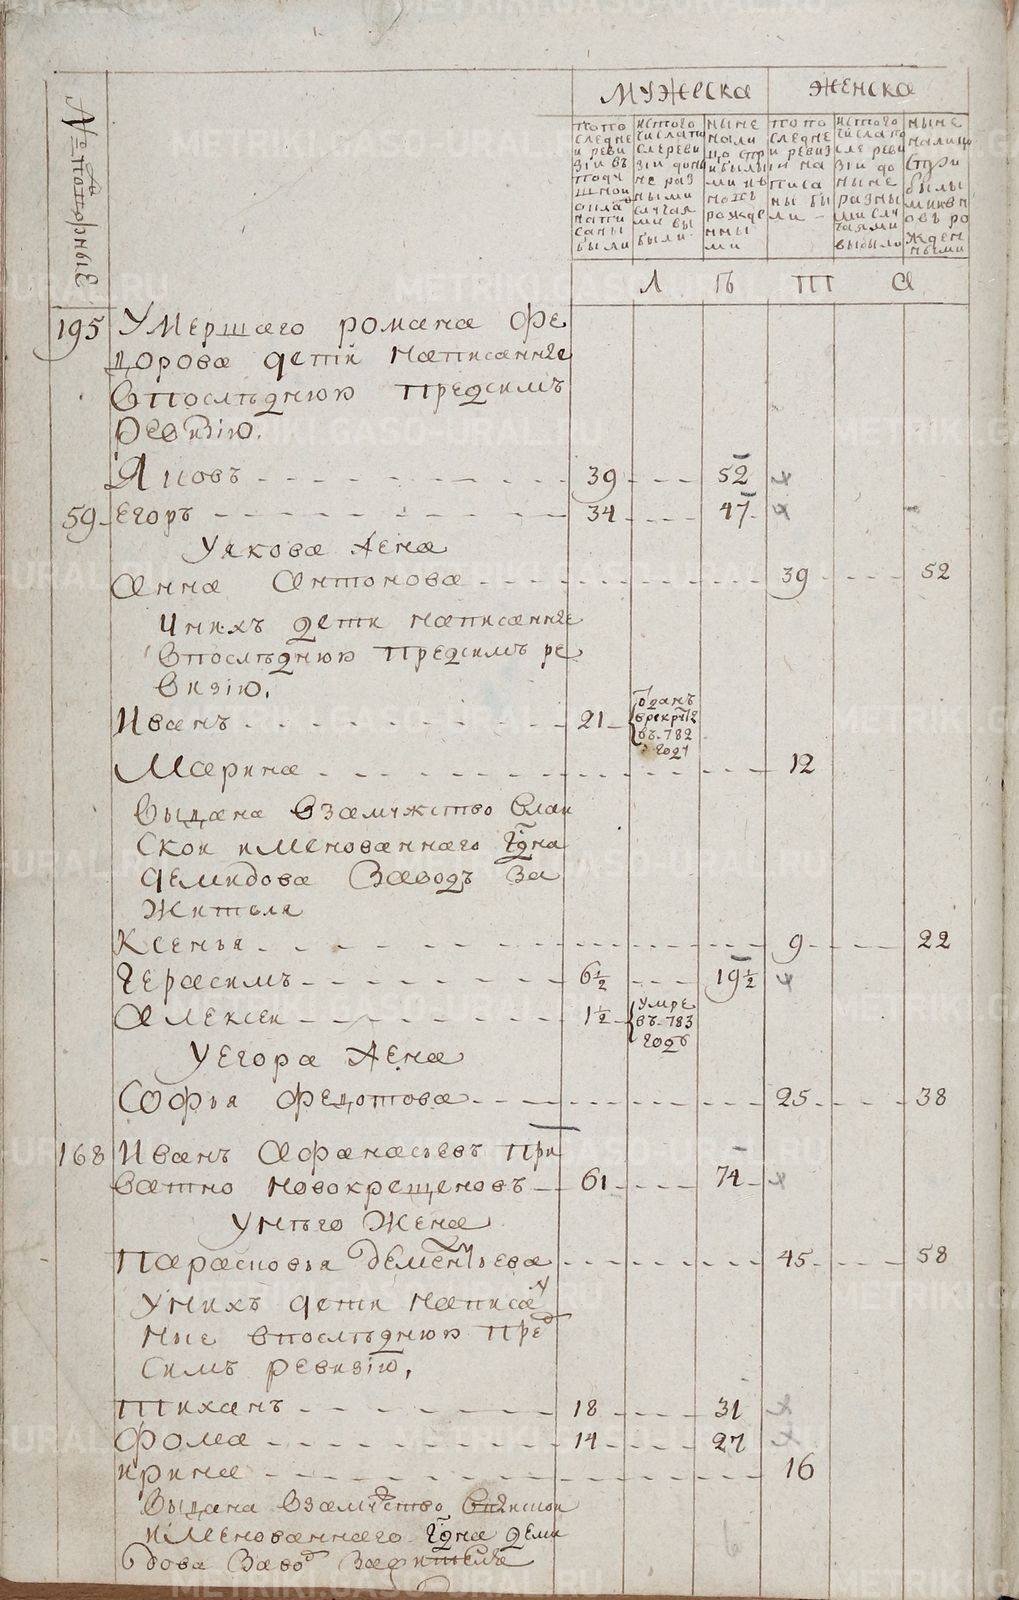 МУЖеска ЖЕНска
№ надиныЕ
попо следне и реви зіи въ подушнои окладъ напи саны были
изтого числапо слеревизіи доныне разными случаями выбыли
ныне нали цо спри былыми ивновь рожденными
попо следне и ревизіи написаны были
изтого числапо сле ревизіи до ныне разными случаями выбыло
ныне налицо спри былыми ивновь рожденными
Л ПЪ ТП А
195 Умершаго романа фе
дорова дети написанные
впоследнюю предсимъ
Ревизію.
Яковъ 39 52
59 Егоръ 34 47
Уякова жена
анна антонова 39 52
Унихъ дети написанные
впоследнюю предсимъ ре
визію.
Иванъ 21 отданъ врекруты въ 782 году
Марина 12
выдана взамужство влаи
скои именованнаго Гдна
демидова Заводъ За
Жителя
Ксенья 9 22
Герасимъ 6½ 19½
алексеи 1½ умре въ 783 годѣ
Уегора жена
Софья федотова 25 38
168 Иванъ афанасьевъ при
ватно новокрещеновъ 61 74
Унего Жена
Парасковья дементьева 45 58
Унихъ дети написан
ные впоследнюю пред
симъ ревизію.
Тиханъ 18 31
фома 14 27
ирина 16
Выдана взамужство
именованнаго Гдна деми
дова Завод Зажителя
METRIKI.GASO-URAL.RU